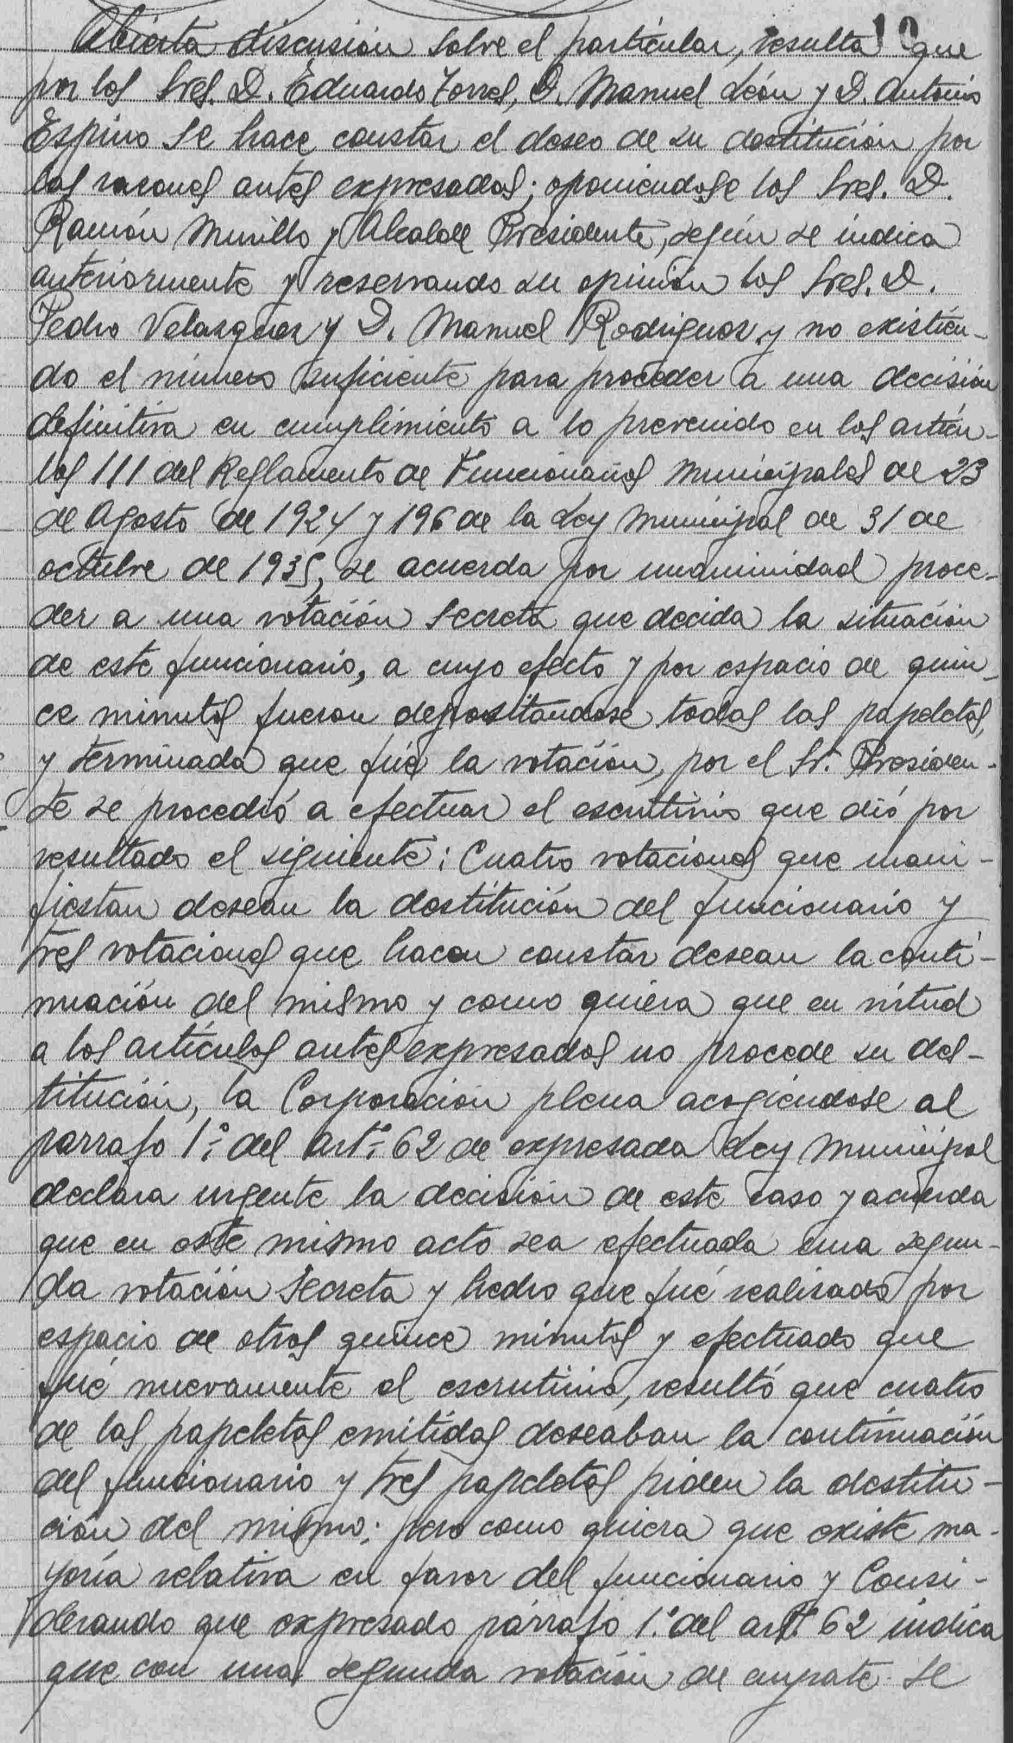 Abierta discusión sobre el particular, resulta que
10
por los Sres. D. Eduardo Torres, D. Manuel León y D. Antonio
Espino se hace constar el deseo de su destitución por
las razones antes expresadas; oponiendose los Sres. D.
Ramón Murillo y Alcalde Presidente, según se indica
anteriormente y reservando su opinión los Sres. D.
Pedro Velazquez y D. Manuel Rodriguez y no existien-
do el número suficiente para proceder a una decisión
definitiva en cumplimiento a lo prevenido en los artícu-
los 111 del Reglamento de Funcionarios Municipales de 23
de Agosto de 1924 y 196 de la Ley Municipal de 31 de
octubre de 1935, se acuerda por unanimidad proce-
der a una votación secreta que decida la situación
de este funcionario, a cuyo efecto y por espacio de quin-
ce minutos fueron depositándose todas las papeletas,
y terminada que fué la votación, por el Sr. Presiden-
te se procedió a efectuar el escrutinio que dió por
resultado el siguiente: Cuatro votaciones que mani-
fiestan desean la destitución del funcionario y
tres votaciones que hacen constar desean la conti-
nuación del mismo y como quiera que en virtud
a los artículos antes expresados no procede su des-
titución, la Corporación plena acogiéndose al
parrafo 1º del artº 62 de expresada Ley Municipal
declara urgente la decisión de este caso y acuerda
que en este mismo acto sea efectuada una segun-
da votación secreta y hecho que fué realizada por
espacio de otros quince minutos y efectuado que
fué nuevamente el escrutinio, resultó que cuatro
de las papeletas emitidas deseaban la continuación
del funcionario y tres papeletas piden la destitu-
ción del mismo: pero como quiera que existe ma-
yoría relativa en favor del funcionario y Consi-
derando que expresado párrafo 1º del artº 62 indica
que con una segunda votación de empate se